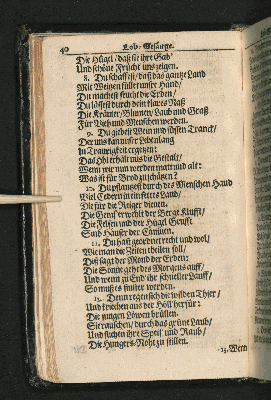 40 Lob-Gesänge.
Die Hügel / daß sie ihre Gab'
Und schöne Frücht uns zeigen.
8. Du schaffest / daß das gantze Land
Mit Weitzen füllet unser Hand /
Du machest feucht die Erden /
Du lässest durch dein klares Naß
Die Kräuter / Blumen / Laub und Graß
Für Vieh und Menschen werden.
9. Du giebest Wein und süssen Tranck /
Der uns kan unser Lebenlang
In Traurigkeit ergetzen:
Das Oehl erhält uns die Gestalt /
Wenn wir nun werden matt und alt:
Was ist für Brod zu schätzen?
10. Du pflantzest durch des Menschen Hand
Viel Cedern in ein fettes Land /
Die für die Reiger dienen.
Die Gems' erwehlt der Berge Klufft /
Die Felsen und der Hügel Grufft
Sind Häuser der Caninen.
11. Du hast geordnet recht und wol /
Wie man die Zeiten theilen soll /
Diß sagt der Mond der Erden:
Die Sonne geht des Morgens auff /
Und wenn zu End ihr schneller Lauff /
So muß es finster werden.
12. Denn regen sich die wilden Thier /
Und kriechen aus der Höll herfür:
Die jungen Löwen brüllen.
Sie rauschen / durch das grüne Laub /
Und suchen ihre Speiß' und Raub /
Die Hungers-Noht zu stillen.
13. Wenn